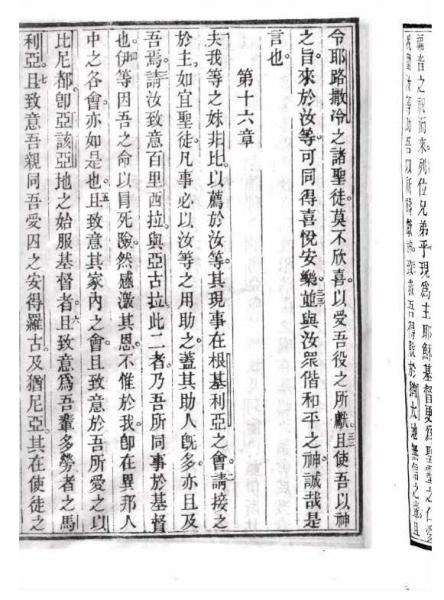 福音之祝而來。列位兄弟乎現爲主耶穌基督更爲聖靈之仁愛
汝等助吾以祈禱吾得脫於猶太地無信之輩且
令耶路撒冷之諸聖徒莫不欣喜以愛吾役之所獻。且使吾以神
之旨。來於汝等。可同得喜悅安樂。並與汝眾偕和平之神誠哉是
言也。
第十六章
夫我等之妹非比。以薦於汝等。其現事在根基利亞之會。請接之
於主。如宜聖徒。凡事必以汝等之用助之。蓋其助人旣多。亦且及
吾焉。請汝致意百里西拉。與亞古拉。此二者。乃吾所同事於基督
也。伊等因吾之命以冒死險。然感激其恩。不惟於我。卽在異邦人
中之各會亦如是也。且致意其家內之會。且致意於吾所愛之以
比尼都。卽亞該亞地之始服基督者。且致意爲吾輩多勞者之馬
利亞。且致意吾親同吾受囚之安得羅古及猶尼亞。其在使徒之